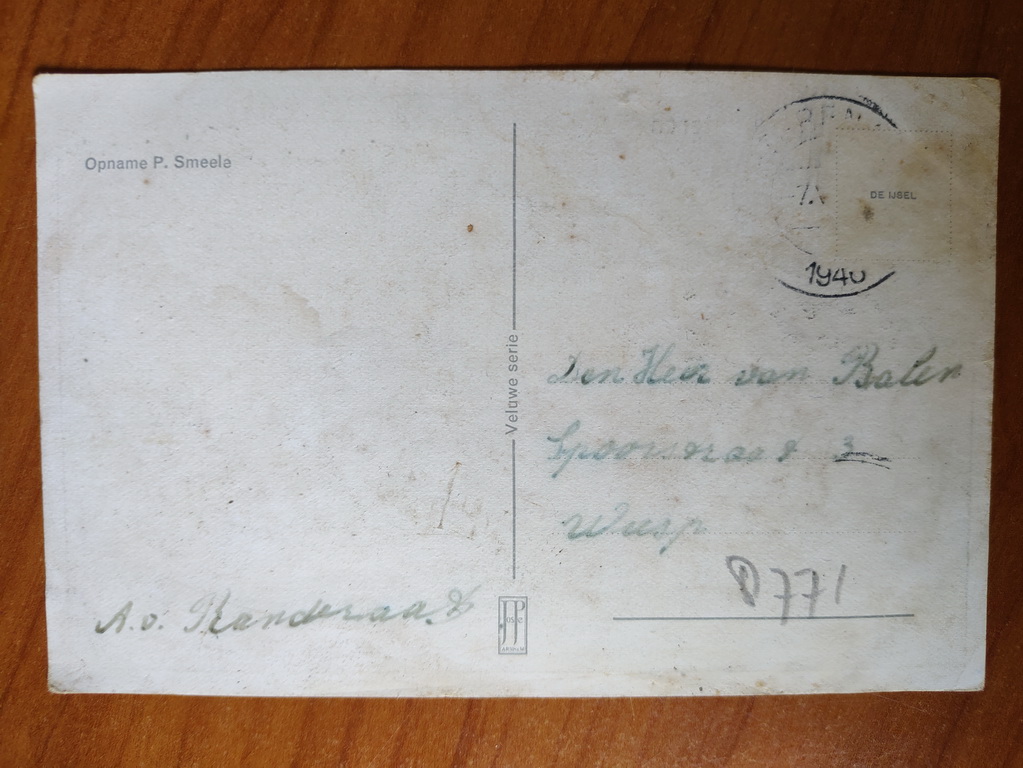 Opname P. Smeele
DE IJSEL
1940
Veluwe serie
Den Heer van Balen
Spoorstraat 3
Weesp
D771
A. v. Randeraat
JP